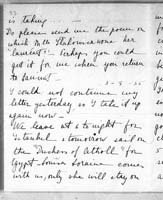 is taking —
Do please send me the poem on
which Miss
"laureat"! Perhaps you could
get it for me when you return
to
2-9-25
I could not continue my
letter yesterday so I take it up
again now —
We leave at 5 to night for
Istanbul & tomorrow sail on
the "Duchess of Atholl" for
Egypt. Louisa Loraine comes
with us, only she will stay on